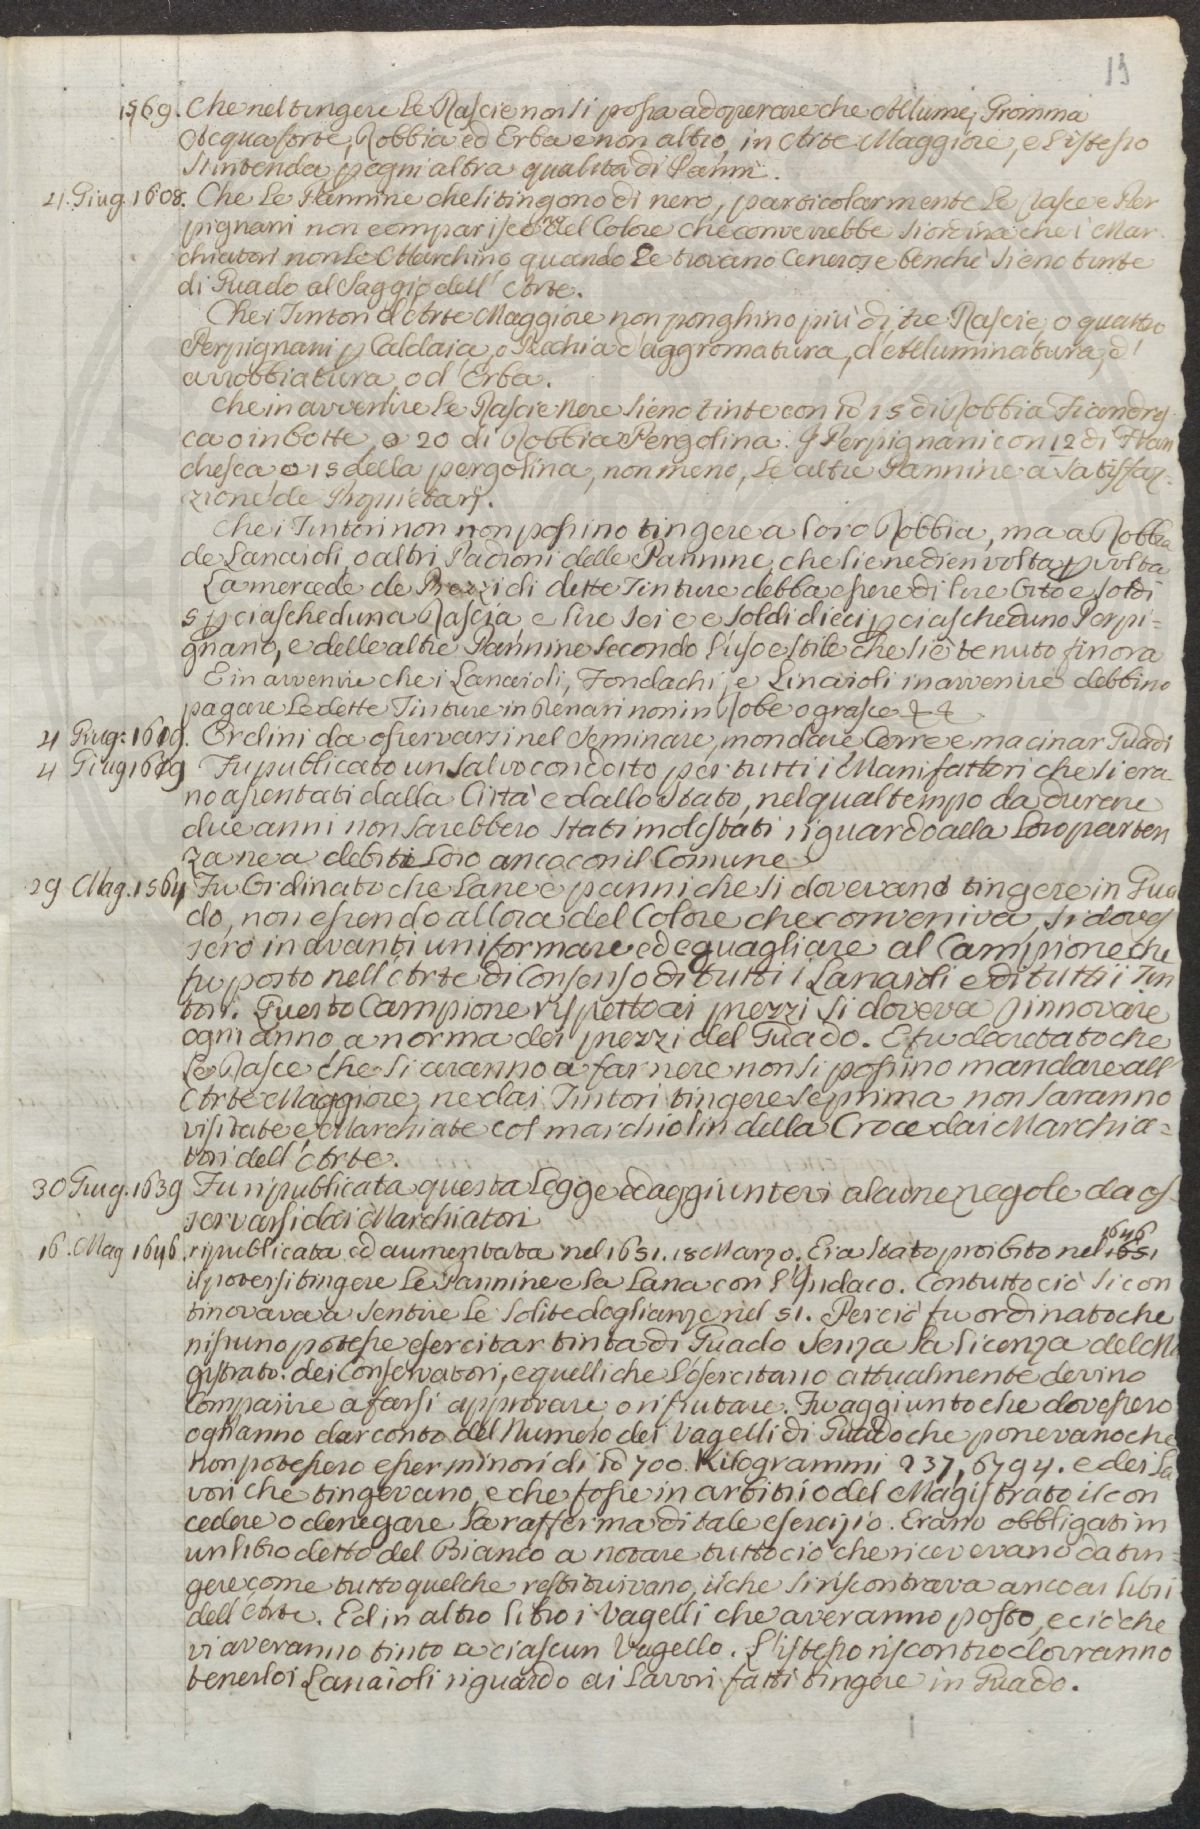 19
1569. Che nel tingere le Rascie non si possa adoperare che Allume, Gromma
Acqua forte, Robbia ed Erba e non altro, in Arte Maggiore, e l'istesso
s'intenda p ogni altra qualità di Panni.
21. Giug. 1608. Che le Pannine che si tingono di nero, particolarmente le Rasce e Per
pignani non compariscono del Colore che converrebbe si ordina che i Mar
chiatori non le Marchino quando le trovano Cenerose benchè sieno tinte
di Guado al Saggio dell' Arte.
Che i Tintori d'Arte Maggiore non ponghino più di tre Rascie, o quattro
Perpignani p Caldaia, o d'aggromatura, d'Alluminatura, d'
arrobbiatura, o d'Erba.
Che in avvenire le Rascie Nere sieno tinte con lb 15 di Robbia Fiandres
ca o in botte, o 20 di Robbia Pergolina. I Perpignani con 12 di Fian
chesca o 15 della pergolina, non meno, le altre Pannine a satisfaz=
zione de Proprietarj.
Che i Tintori non non possino tingere a loro Robbia, ma a Robbia
de Lanaioli, o altri Padroni delle Pannine, che sieno di en volta p volta
La mercede de Prezzi di dette Tinture debba essere di lire Otto e soldi
5 p ciascheduna Rascia e lire sei e e soldi dieci p ciascheduno Perpi=
gnano, e delle altre Pannine secondo l'uso e stile che si è tenuto finora
E in avvenire che i Lanaioli, Fondachi, e Linaioli in avvenire debbino
pagare le dette Tinture in Denari non in Robe o grasce &&
4 Giug: 1619. Ordini da osservarsi nel Seminare, mondare Corre e macinar Guadi
4 Giug 1619 Fu publicato un Salvocondotto per tutti i Manifattori che si era
no assentati dalla Città e dallo Stato, nel qual tempo da durare
due anni non sarebbero stati molestati riguardo alla loro parten
za ne a debiti loro anco con il Comune
29 Mag. 1564 Fu Ordinato che Lane e panni che si dovevano tingere in Gua
do, non essendo allora del Colore che conveniva, si doves
sero in avanti uniformare ed eguagliare al Campione che
fu posto nell'Arte di Consenso di tutti i Lanaioli e di tutti i Tin
tori. Questo Campione rispetto ai prezzi si doveva rinnovare
ogni anno a norma dei prezzi del Guado. E fu decretato che
le Rasce che si aranno a far nere non si possino mandare all'
Arte Maggiore, ne dai Tintori tingere se prima non saranno
visitate e Marchiate col marchiolin della Croce dai Marchia=
tori dell'Arte.
30 Giug. 1639 Fu ripublicata questa Legge ed aggiuntevi alcune regole da os
servarsi dai Marchiatori
16. Mag 1646. ripublicata ed aumentata nel 1651. 18 Marzo. Era stato proibito nel 1651 1646
il potersi tingere le Pannine e la Lana con l'Indaco. Contuttociò si con
tinovava a sentire le solite doglianze nel 51. Perciò fu ordinato che
nissuno potesse esercitar tinta di Guado senza la licenza del Ma
gistrato dei Conservatori, e quelli che l'esercitano attualmente devino
Comparire a farsi approvare o rifiutare. Fu aggiunto che dovessero
ogn'anno dar conto del Numero dei Vagelli di Guado che ponevano che
non potessero esser minori di lb 700 Kilogrammi 237,6794. e dei La
vori che tingevano, e che fosse in arbitrio del Magistrato il con
cedere o denegare la rafferma di tale esercizio. Erano obbligati in
un libro detto del Bianco a notare tutto ciò che ricevevano da tin=
gere come tutto quel che restituivano, il che si riscontrava anco ai libri
dell'Arte. Ed in altro libro i Vagelli che averanno posto, e ciò che
vi averanno tinto a ciascun Vagello. L'istesso riscontro dovranno
tenerlo i Lanaioli riguardo ai Lavori fatti tingere in Guado.